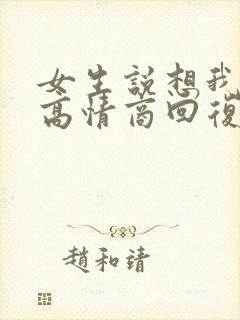 女生説想我
高情商回復
趙和靖